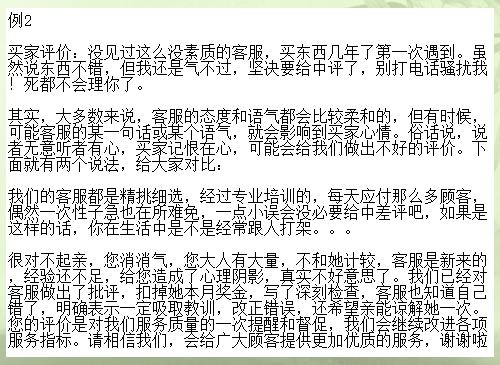 例2
买家评价：没见过这么没素质的客服，买东西几年了第一次遇到。虽
然说东西不错，但我还是气不过，坚决要给中评了，别打电话骚扰我
！死都不会理你了。
其实，大多数来说，客服的态度和语气都会比较柔和的，但有时候，
可能客服的某一句话或某个语气，就会影响到买家心情。俗话说，说
者无意听者有心，买家记恨在心，可能会给我们做出不好的评价。下
面就有两个说法，给大家对比：
我们的客服都是精挑细选，经过专业培训的，每天应付那么多顾客，
偶然一次性子急也在所难免，一点小误会没必要给中差评吧，如果是
这样的话，你在生活中是不是经常跟人打架。。。
很对不起亲，您消消气，您大人有大量，不和她计较，客服是新来的
，经验还不足，给您造成了心理阴影，真实不好意思了。我们已经对
客服做出了批评，扣掉她本月奖金，写了深刻检查，客服也知道自己
错了，明确表示一定吸取教训，改正错误，还希望亲能谅解她一次。
您的评价是对我们服务质量的一次提醒和督促，我们会继续改进各项
服务指标。请相信我们，会给广大顾客提供更加优质的服务，谢谢啦